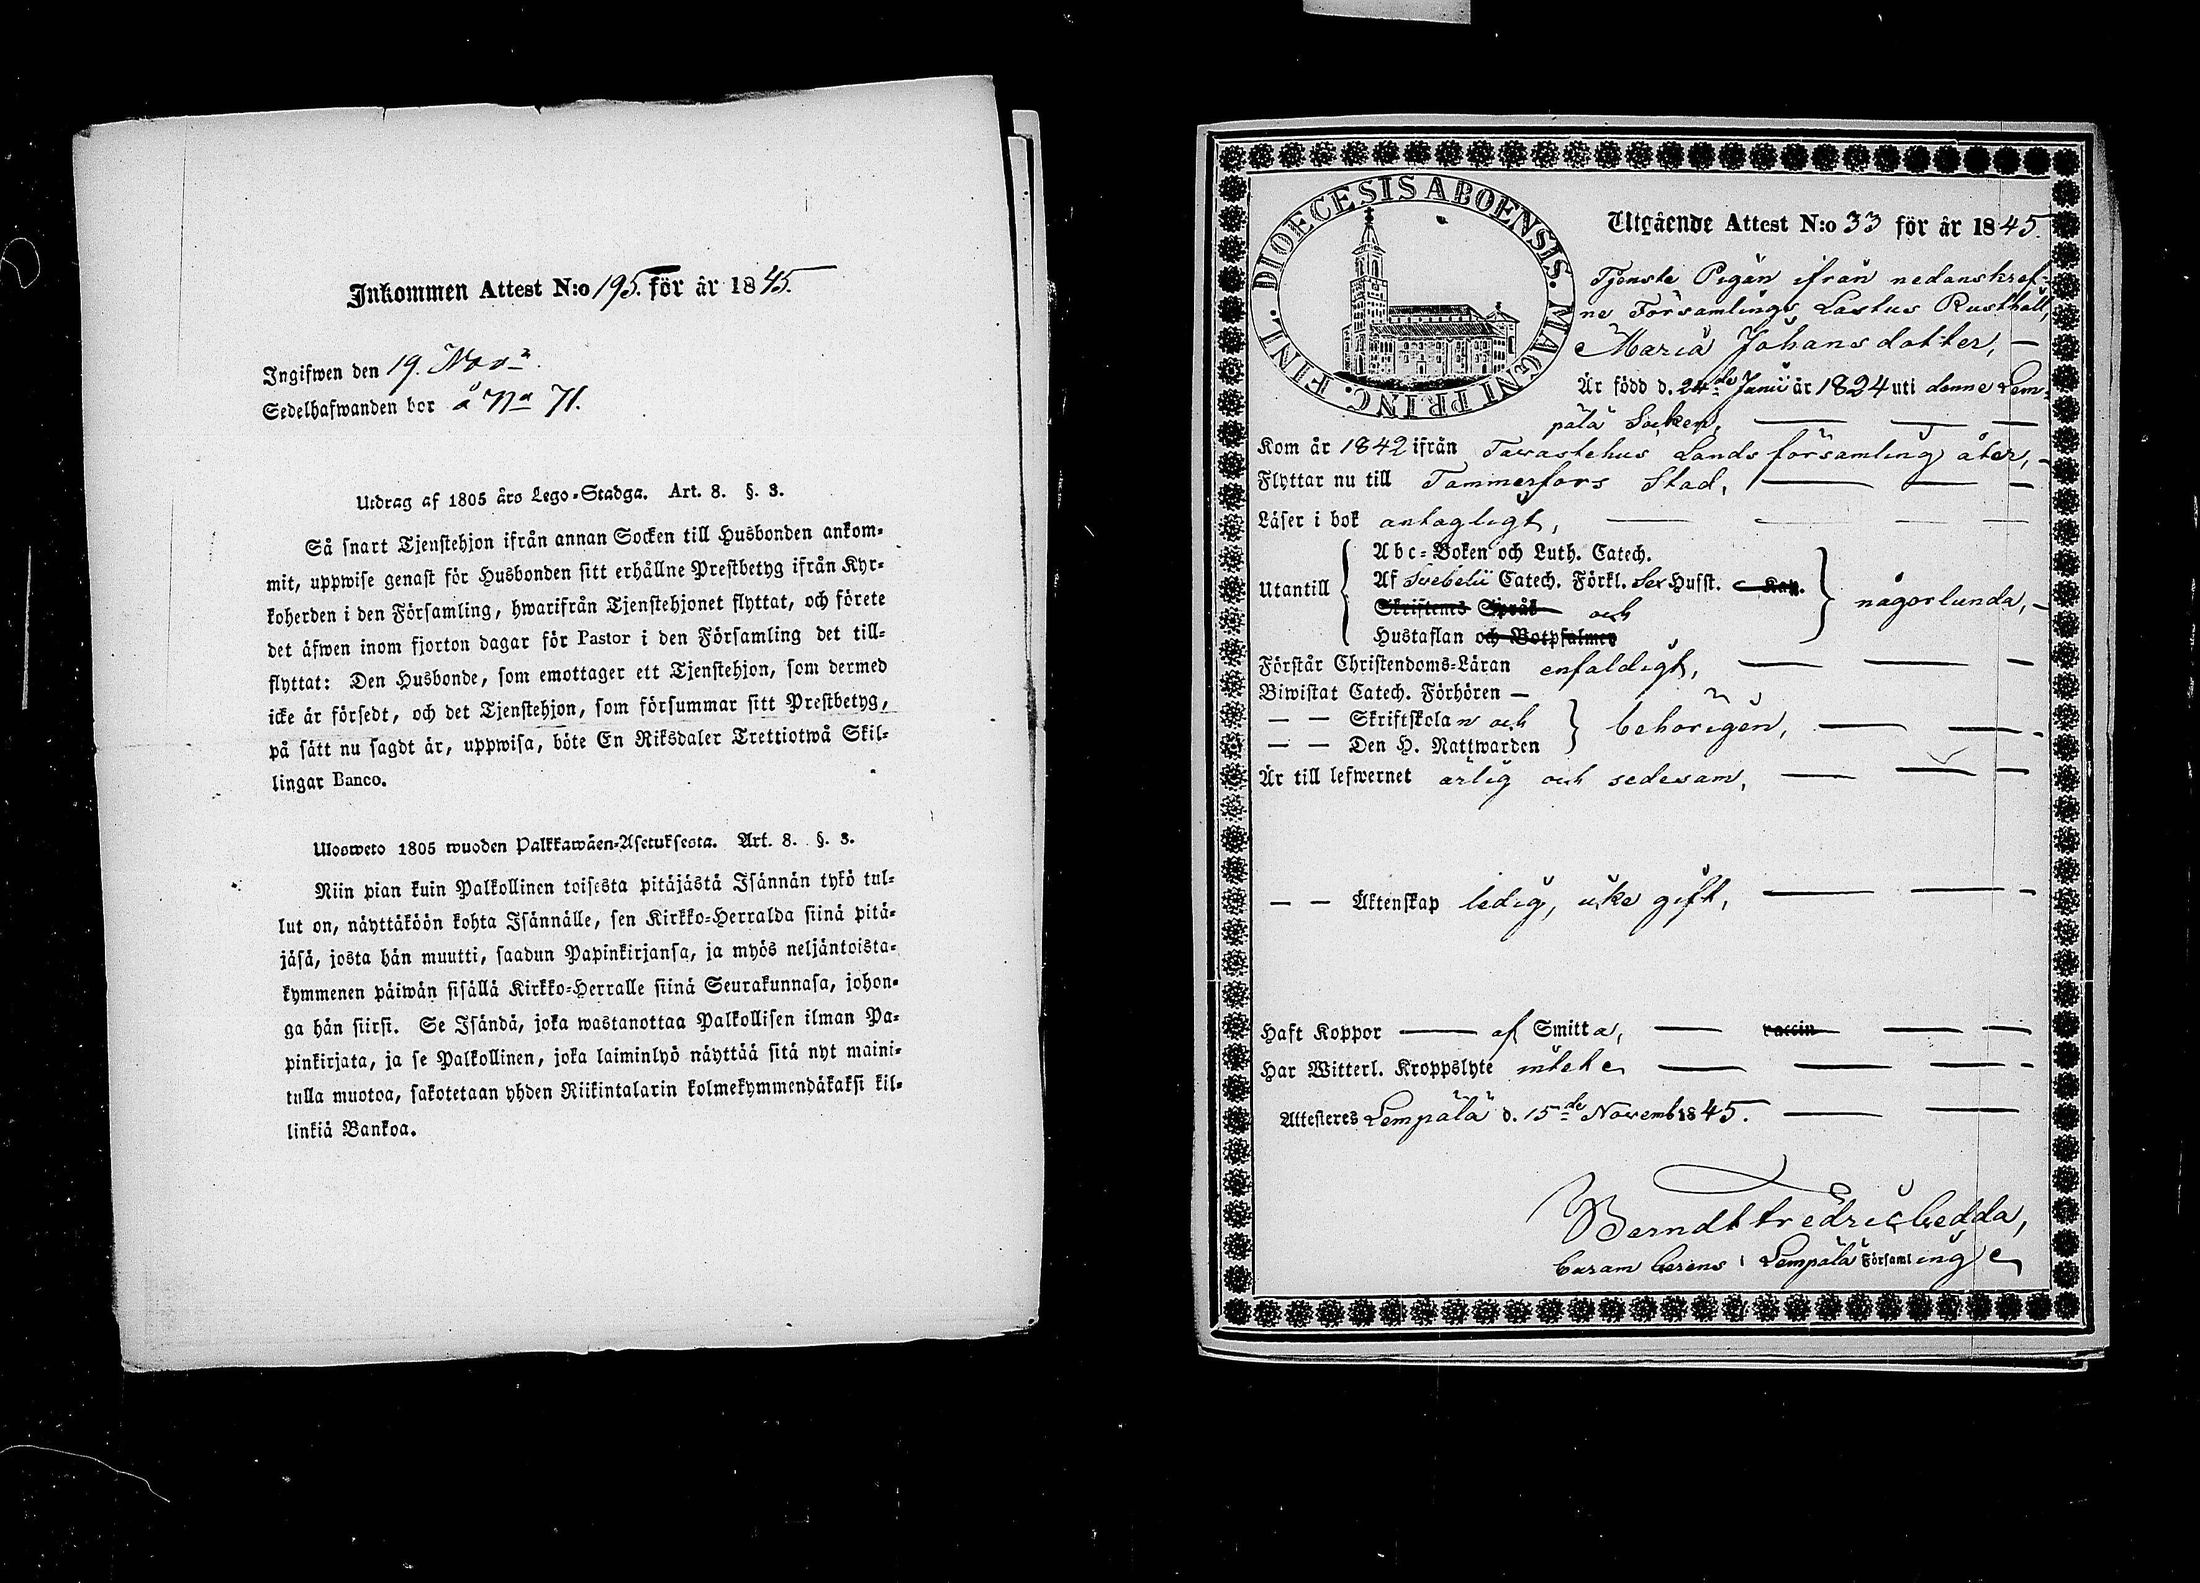 Inkommen Attest N:o 195. för år 1845.
Ingifwen den 19. Nov
Sedelhafwanden bor å
71.
Utdrag af 1805 års Lego-Stadga. Art. 8. §. 3.
Så snart Tjenstehjon ifrån annan Socken till Husbonden ankom-
mit, uppwise genast för Husbonden sitt erhållne Prestbetyg ifrån Kyr-
koherden i den Församling, hwarifrån Tjenstehjonet flyttat, och förete
det äfwen inom fjorton dagar för Pastor i den Församling det till-
flyttat: Den Husbonde, som emottager ett Tjenstehjon, som dermed
icke är försedt, och det Tjenstehjon, som försummar sitt Prestbetyg,
på sätt nu sagdt är, uppwisa, böte En Riksdaler Trettiotwå Skil-
lingar Banco.
Ulosweto 1805 wuoden Palkkawäen-Asetuksesta. Art. 8. §. 3.
Niin pian kuin Palkollinen toisesta pitäjästä Isännän tykö tul-
lut on, näyttäköön kohta Isännälle, sen Kirkko-Herralda siinä pitä-
jäsä, josta hän muutti, saadun Papinkirjansa, ja myös neljäntoista-
kymmenen päiwän sisällä Kirkko-Herralle siinä Seurakunnasa, johon-
ga hän siirsi. Se Isändä, joka wastanottaa Palkollisen ilman Pa-
pinkirjata, ja se Palkollinen, joka laiminlyö näyttää sitä nyt maini-
tulla muotoa, sakotetaan yhden Riikintalarin kolmekymmendäkaksi kil-
linkiä Bankoa.
DIOECESIS ABOENSIS. MAGNI PRINC. FINL.
Utgående Attest N:o 33 för år 1845.
Tjenste Pigan ifrån nedanskref-
ne Församlings Lastus Rusthåll,
Maria Johansdotter, —
Är född d. 24de Junii år 1824 uti denne Lem-
pälä Socken, — — —
Kom år 1842 ifrån Tavastehus Lands församling åter, —
Flyttar nu till Tammerfors Stad, — — —
Läser i bok antagligt, — — — —
Utantill
Abc-Boken och Luth. Catech.
Af Svebelii Catech. Förkl. Sex Husst. Kap.
Skriftenes Språk och
Hustaflan och Botpsalmer
någorlunda, —
Förstår Christendoms-Läran enfaldigt, — — —
Biwistat Catech. Förhören —
— — Skriftskolan och
— — Den H. Nattwarden
behörigen, — — —
Är till lefwernet ärlig och sedesam, — — —
— — Äktenskap ledig, icke gift, — — —
Haft Koppor — af Smitta, — vaccin — —
Har Witterl. Kroppslyte intet — — — —
Attesteres Lempälä d. 15de Novemb 1845. — —
Berndt Fredric Gedda,
Curam Gerens i Lempälä Församling